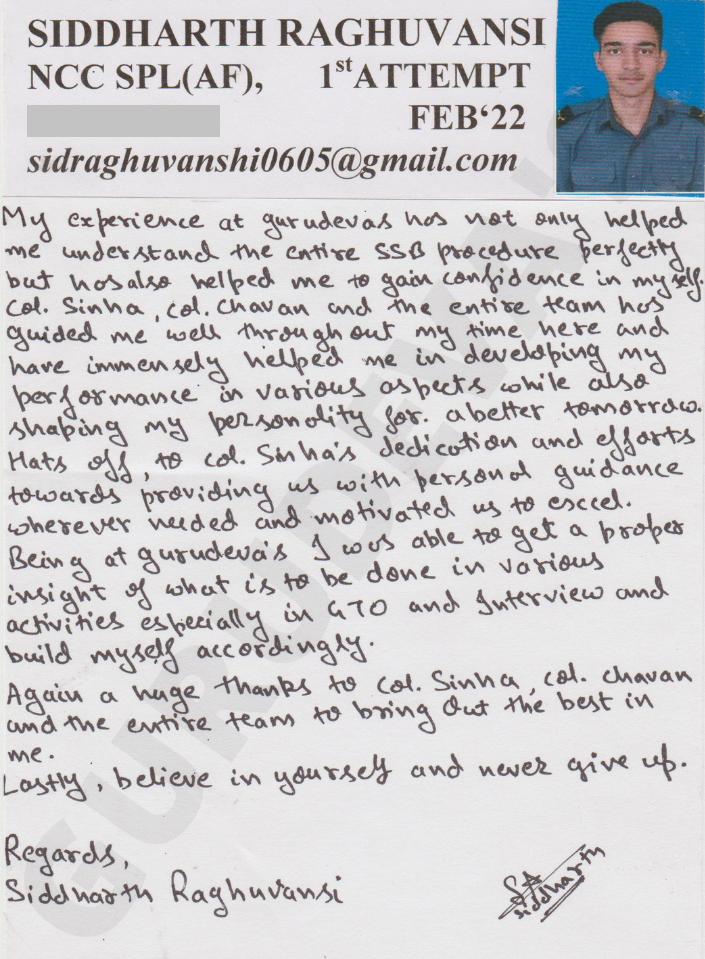 SIDDHARTH RAGHUVANSI
NCC SPL(AF), 1st ATTEMPT
FEB‘22
sidraghuvanshi0605@gmail.com
My experience at gurudevas has not only helped
me understand the entire SSB procedure perfectly
but has also helped me to gain confidence in myself.
Col. Sinha, col. Chavan and the entire team has
guided me well throughout my time here and
have immensely helped me in developing my
performance in various aspects while also
shaping my personality for. a better tomorrow.
Hats off, to col. Sinha's dedication and efforts
towards providing us with personal guidance
wherever needed and motivated us to excel.
Being at gurudeva's I was able to get a proper
insight of what is to be done in various
activities especially in GTO and Interview and
build myself accordingly.
Again a huge thanks to Col. Sinha, col. chavan
and the entire team to bring out the best in
me.
Lastly, believe in yourself and never give up.
Regards,
Siddharth Raghuvansi
siddharth
GURUDEVA'S